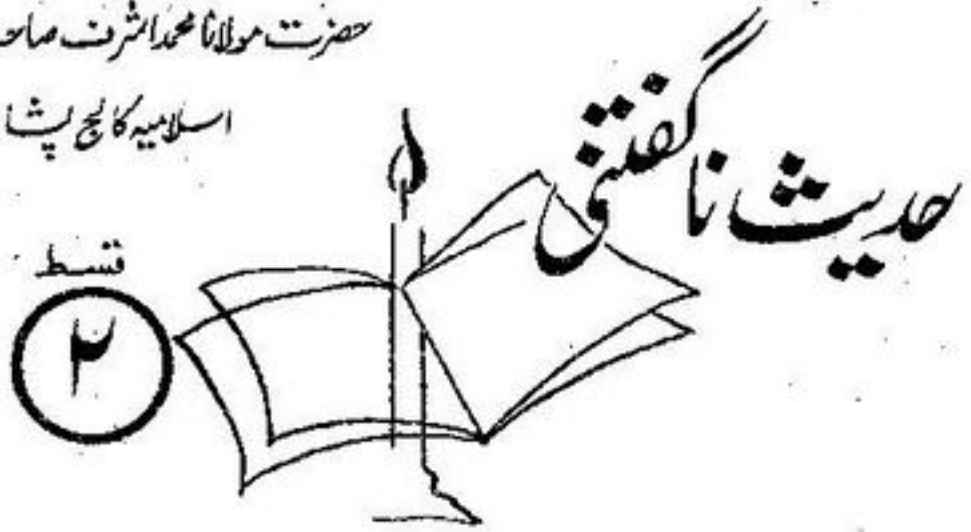 حضرت مولانا محمد اشرف صاحب
اسلامیہ کالج پشا
حدیث ناگفتنی
قسط
۲